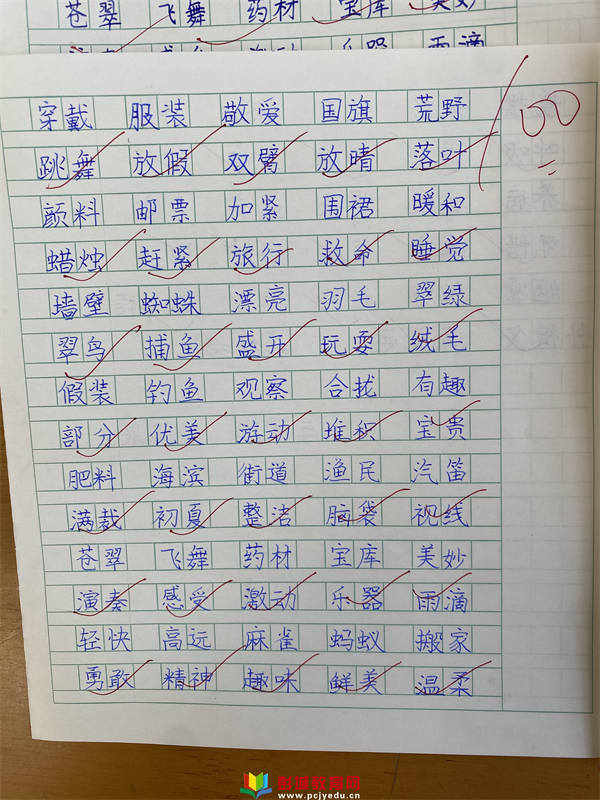 苍翠 飞舞 药材 宝库 美妙
穿戴 服装 敬爱 国旗 荒野
100
跳舞 放假 双臂 放晴 落叶
颜料 邮票 加紧 围裙 暖和
蜡烛 赶紧 旅行 救命 睡觉
墙壁 蜘蛛 漂亮 羽毛 翠绿
翠鸟 捕鱼 盛开 玩耍 绒毛
假装 钓鱼 观察 合拢 有趣
部分 优美 游动 堆积 宝贵
肥料 海滨 街道 渔民 汽笛
满载 初夏 整洁 脑袋 视线
苍翠 飞舞 药材 宝库 美妙
演奏 感受 激动 乐器 雨滴
轻快 高远 麻雀 蚂蚁 搬家
勇敢 精神 趣味 鲜美 温柔
www.pcjyedu.cn